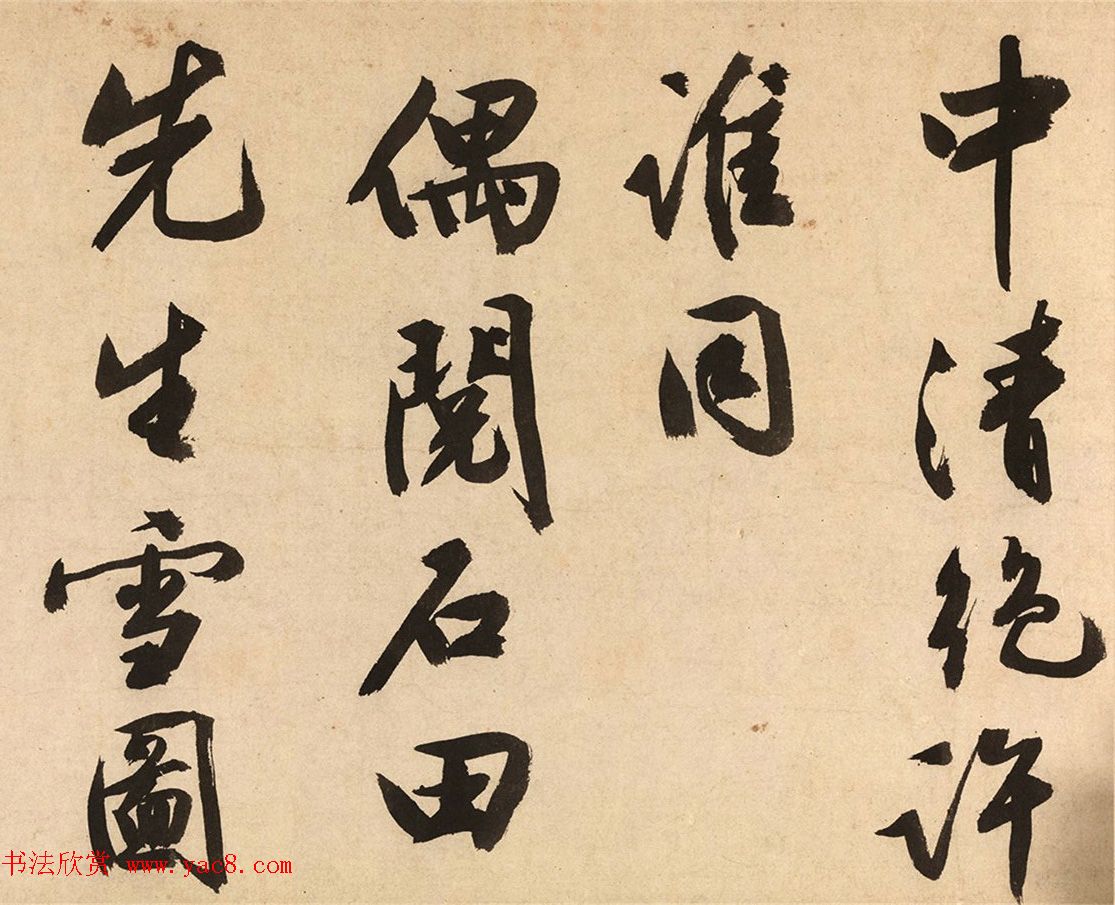 中清絶許
誰同
偶閲石田
先生雪圖
书法欣赏 www.yac8.com